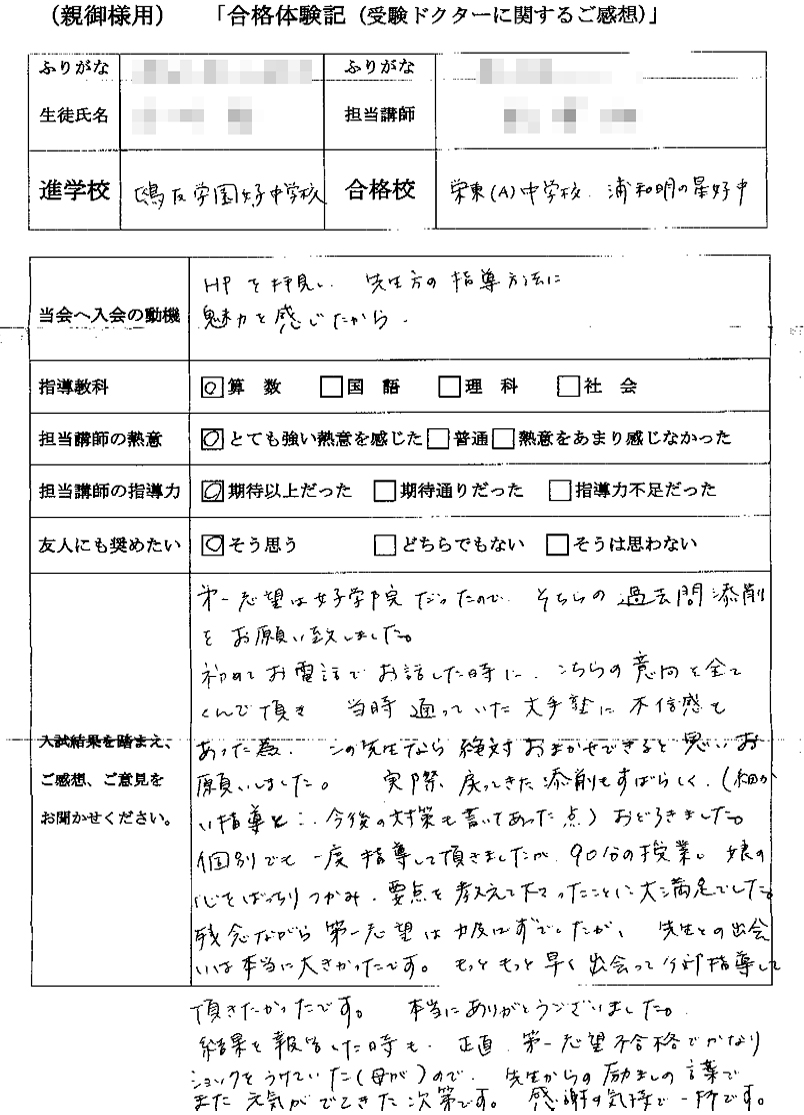 （親御様用）　「合格体験記（受験ドクターに関するご感想）」
ふりがな　ふりがな
生徒氏名　担当講師
進学校　鴎友学園女子中学校　合格校　栄東(A)中学校、浦和明の星女子中
当会へ入会の動機　HPを拝見し、先生方の指導方法に
魅力を感じたから。
指導教科　☑算　数　□国　語　□理　科　□社　会
担当講師の熱意　☑とても強い熱意を感じた□普通□熱意をあまり感じなかった
担当講師の指導力　☑期待以上だった　□期待通りだった　□指導力不足だった
友人にも奨めたい　☑そう思う　□どちらでもない　□そうは思わない
入試結果を踏まえ、
ご感想、ご意見を
お聞かせください。
第一志望は女子学院だったので、そちらの過去問添削
をお願い致しました。
初めてお電話でお話した時に、こちらの意向を全て
くんで頂き　当時通っていた大手塾に不信感も
あった為、この先生なら絶対おまかせできると思いお
願いしました。　実際、戻ってきた添削もすばらしく、（細か
い指導と　今後の対策も書いてあった点）おどろきました。
個別でも一度指導して頂きましたが、90分の授業で娘の
心をばっちりつかみ、要点を教えて下さったことに大満足でした。
残念ながら第一志望は力及ばずでしたが、先生との出会
いは本当に大きかったです。もっともっと早く出会って指導して
頂きたかったです。　本当にありがとうございました。
結果を報告した時も、正直、第一志望不合格でかなり
ショックをうけていた（母が）ので、先生からの励ましの言葉で
また元気がでてきた次第です。　感謝の気持で一杯です。